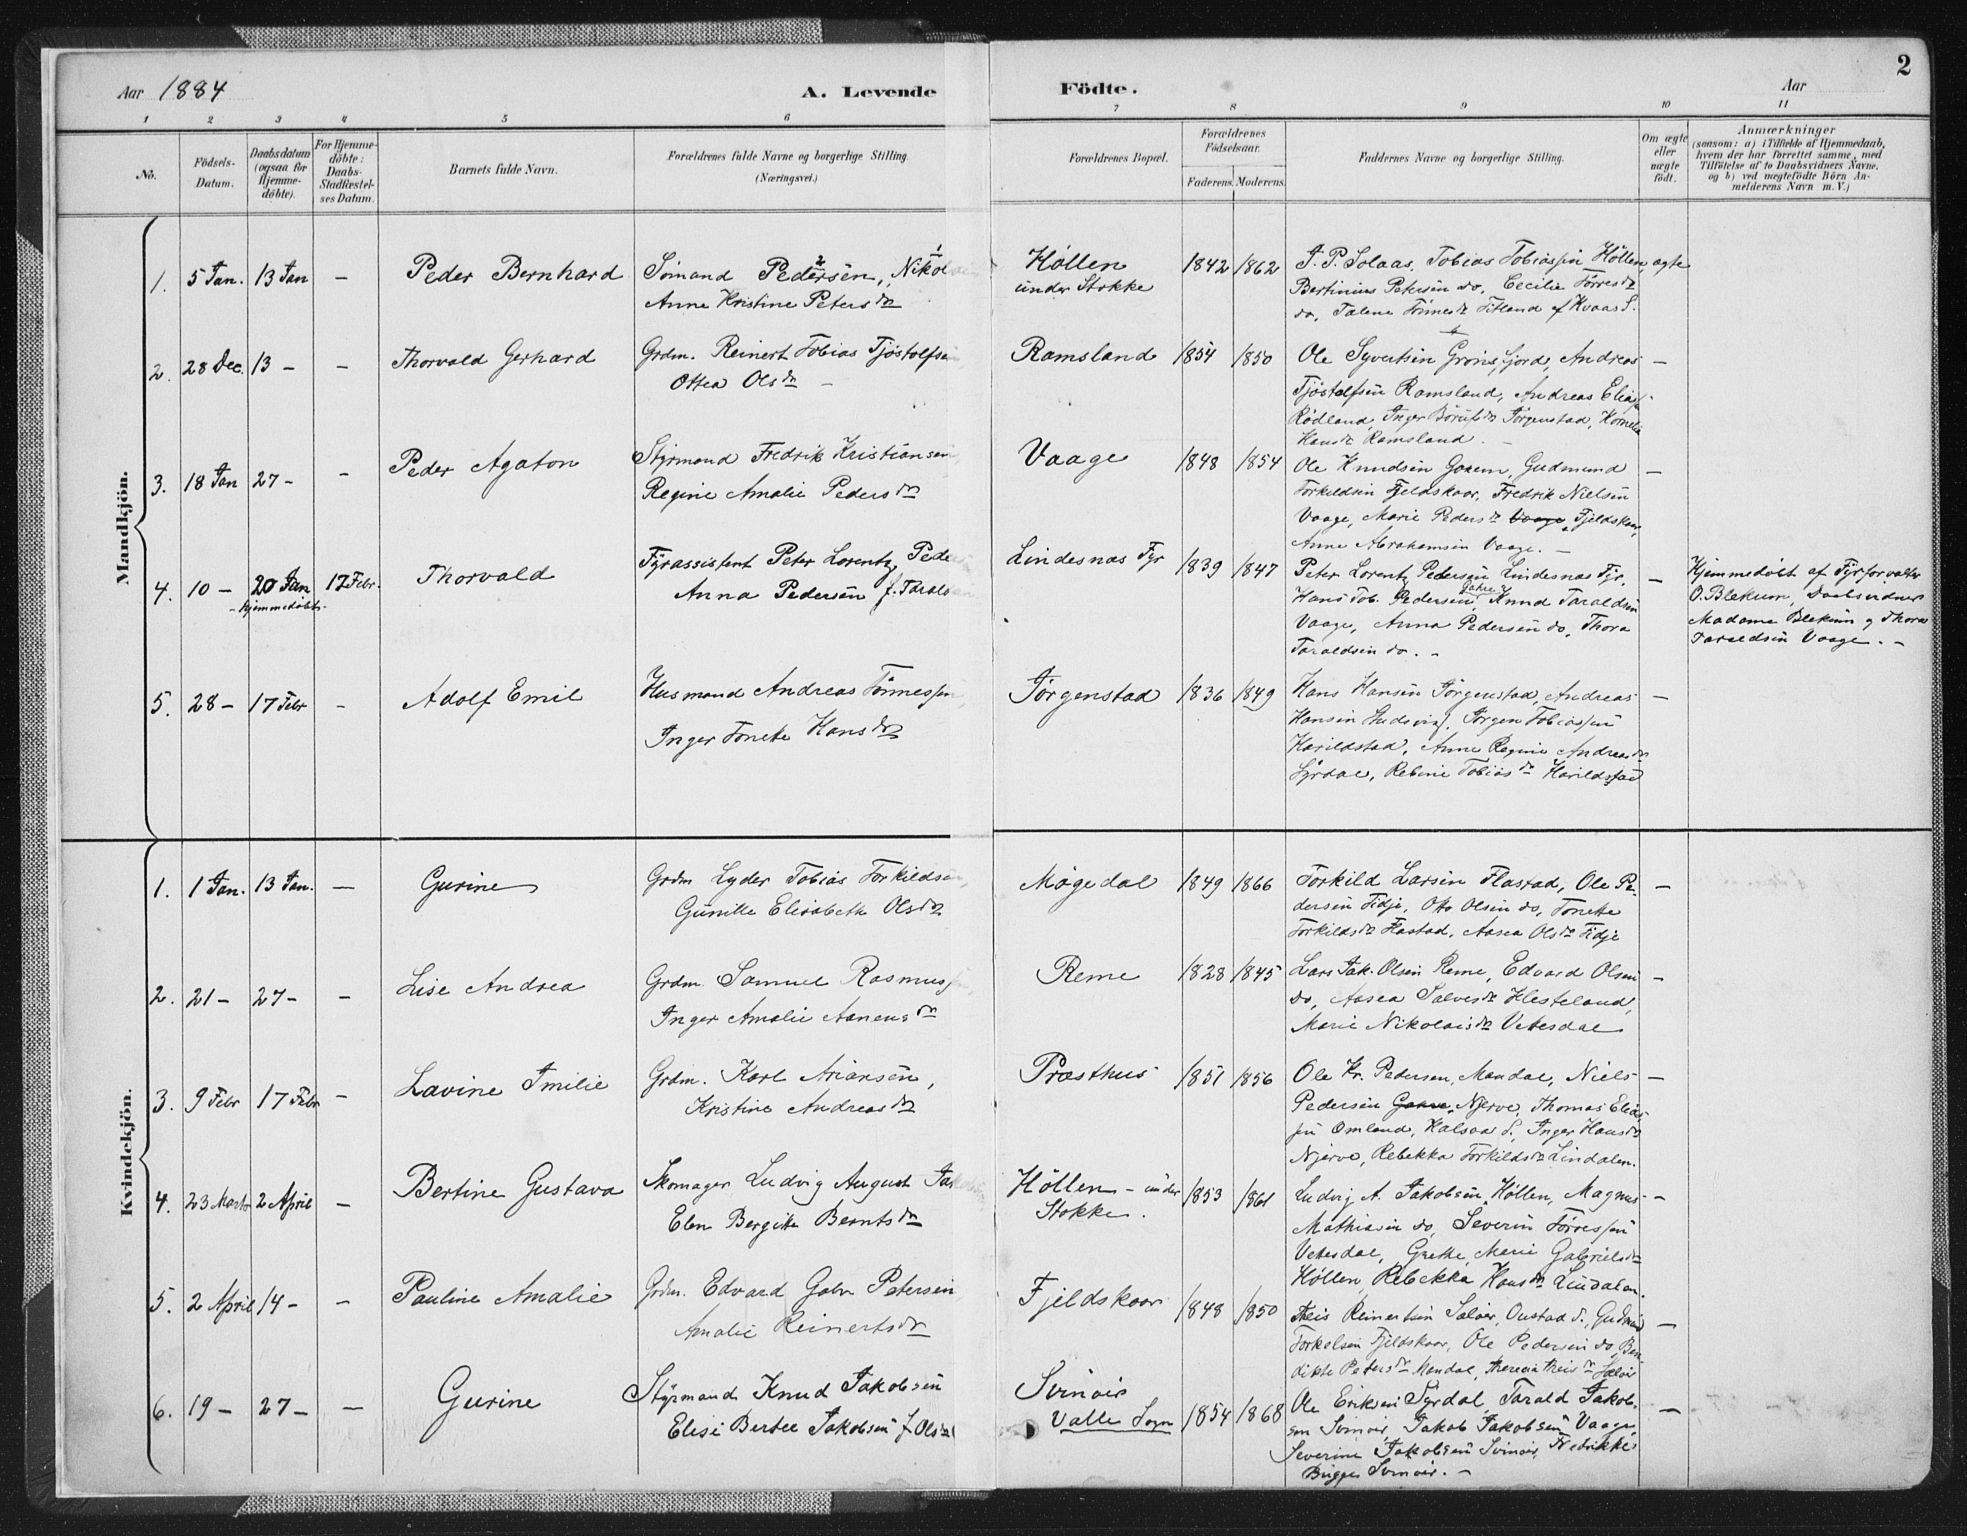 2
Aar 1884
A. Levende Födte.
Aar
1 2 3 4 5 6 7 8 9 10 11
No.
Födsels-Datum.
Daabsdatum (ogsaa for Hjemme-döbte).
For Hjemme-döbte: Daabs-Stadfæstel-ses Datum.
Barnets fulde Navn.
Forældrenes fulde Navne og borgerlige Stilling.
(Næringsvei.)
Forældrenes Bopæl.
Forældrenes Födselsaar.
Faderens. Moderens.
Faddernes Navne og borgerlige Stilling.
Om ægte eller uægte födt.
Anmærkninger
(saasom: a) i Tilfælde af Hjemmedaab, hvem der har forrettet samme, med Tilföielse af to Daabsvidners Navne, og b) ved uægtefödte Börn An-melderens Navn m. V.)
Mandkjön.
1. 5 Jan. 13 Jan — Peder Bernhard Sömand Pedersen, Nikol
Anne Kristine Petersdr
Höllen 1842 1862
under Stokke
J. P. Solaas, Tobias Tobiassen Höllen, ægte
Bertinius Petersen do, Cecilie Törresdr
do, Talene Tönnesdr Fitland af Kvaas S.
2. 28 Dec. 13 — — Thorvald Gerhard Grdm. Reinert Tobias Tjöstolfsen
Ottea Olsdr —
Ramsland 1854 1850
Ole Syvertsen Grönsfjord, Andreas —
Tjöstolfsen Ramsland, Andreas Elias
Rödland, Inger Jörgenstad, Kornelia
Hansdr Ramsland. —
3. 18 Jan 27 — — Peder Agaton Styrmand Fredrik Kristiansen,
Regine Amalie Pedersdr
Vaage 1848 1854
Ole Knudsen Gahre, Gudmund —
Torkildsen Fjeldskaar, Fredrik Nielsen
Vaage, Marie Pedersdr Vaage, Fjeldskaar,
Anne Abrahamsen Vaage. —
4. 10 — 20 Jan 17 Febr. Thorvald Fyrassistent Peter Lorentz Peders
— hjemmedöbt —
Anna Pedersen f. Taralds
Lindesnæs Fyr 1839 1847
Peter Lorentz Pedersen Lindesnæs Fyr, —
Hans Tob. Pedersen Gahre, Knud Taraldsen
Vaage, Anna Pedersen do, Thora
Taraldsen do. —
Hjemmedöbt af Fyrforvalter
O. Blekum, Daabsvidner
Madame Blekum og Thora
Taraldsen Vaage. —
5. 28 — 17 Febr — Adolf Emil Husmand Andreas Tönnessen,
Inger Tonette Hansdr
Jörgenstad 1836 1849
Hans Hansen Jörgenstad, Andreas —
Hansen Ludvig, Jörgen Tobiassen
Harildstad, Anne Regine Andreasdr
Syrdal, Rebine Tobiasdr Harildstad
Kvindekjön.
1. 1 Jan. 13 Jan. — Gurine Grdm Lyder Tobias Torkildsen,
Gunille Elisabeth Olsdr
Mögedal 1849 1866
Torkild Larsen Flastad, Ole Pe- —
dersen Fidje, Otto Olsen do, Tonette
Torkildsdr Flastad, Aasea Olsdr Fidje
2. 21 — 27 — — Lise Andrea Grdm. Samuel Rasmuss
Inger Amalie Aanensdr
Reme 1828 1845
Lars Jak. Olsen Reme, Edvard Olsen —
do, Aasea Salvesdr Hesteland,
Marie Nikolaisdr Vetesdal
3. 9 Febr 17 Febr — Lavine Imilie Grdm. Karl Ariansen,
Kristine Andreasdr
Præsthus 1851 1856
Ole Kr. Pedersen, Mandal, Niels —
Pedersen Gahre, Njerve, Thomas Elias-
sen Omland, Halsaa S., Inger Hansdr
Njerve, Rebekka Torkildsdr Lindalen.
4. 23 Marts 2 April — Bertine Gustava Skomager Ludvig August Jakobs
Elen Bergitte Berntsdr
Höllen — under 1853 1861
Stokke.
Ludvig A. Jakobsen Höllen, Magnus —
Mathiasen do, Severin Törressen
Vetesdal, Grethe Marie Gabrielsdr
Höllen, Rebekka Hansdr Lindalen.
5. 2 April 14 — — Pauline Amalie Grdm. Edvard Gabr Petersen
Amalie Reinertsdr
Fjeldskaar 1848 1850
Theis Reinertsen Salöer, Oustad S., Gudmund —
Torkelsen Fjeldskaar, Ole Pedersen do, Ben-
dikte Petersdr Mandal, Therecia Theisdr Salöer
6. 19 — 27 — — Gurine Styrmand Knud Jakobsen
Elise Bertea Jakobsen f. Olsdr
Svinöer 1854 1868
Valle Sogn
Ole Eriksen Syrdal, Tarald Jakob- —
sen Svinöer, Jakob Jakobsen Vaage,
Severine Jakobsen Svinöer, Nedrikke
Bugge Svinöer. —